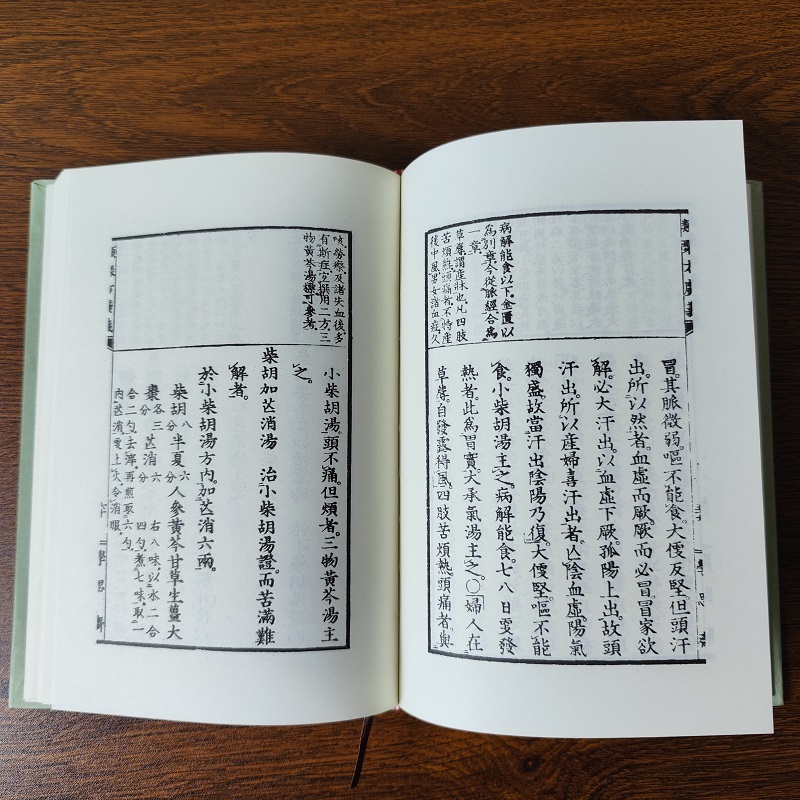 類聚方廣義
病解能食以下金匱以
為別章今從脈經合為
一章
草蓐謂產牀也凡四肢
苦煩熱頭痛者不特產
後中風男女諸血症久
冒其脈微弱嘔不能食大便反堅但頭汗
出所以然者血虛而厥厥而必冒冒家欲
解必大汗出以血虛下厥孤陽上出故頭
汗出所以産婦喜汗出者亡陰血虛陽氣
獨盛故當汗出陰陽乃復大便堅嘔不能
食小柴胡湯主之病解能食七八日更發
熱者此為胃實大承氣湯主之〇婦人在
草蓐自發露得風四肢苦煩熱頭痛者與
咳勞瘵及諸失血後多
有斯症宜撰用二方三
物黃芩湯標可參考
小柴胡湯頭不痛但煩者三物黃芩湯主
之
柴胡加芒消湯 治小柴胡湯證而苦滿難
解者
於小柴胡湯方內加芒消六兩
柴胡八分半夏六分人參黃芩甘草生薑大
棗各三分芒消六分 右八味以水二合
合二勺去滓再煎取六勺四勺煮七味取一
內芒消更上火令消服